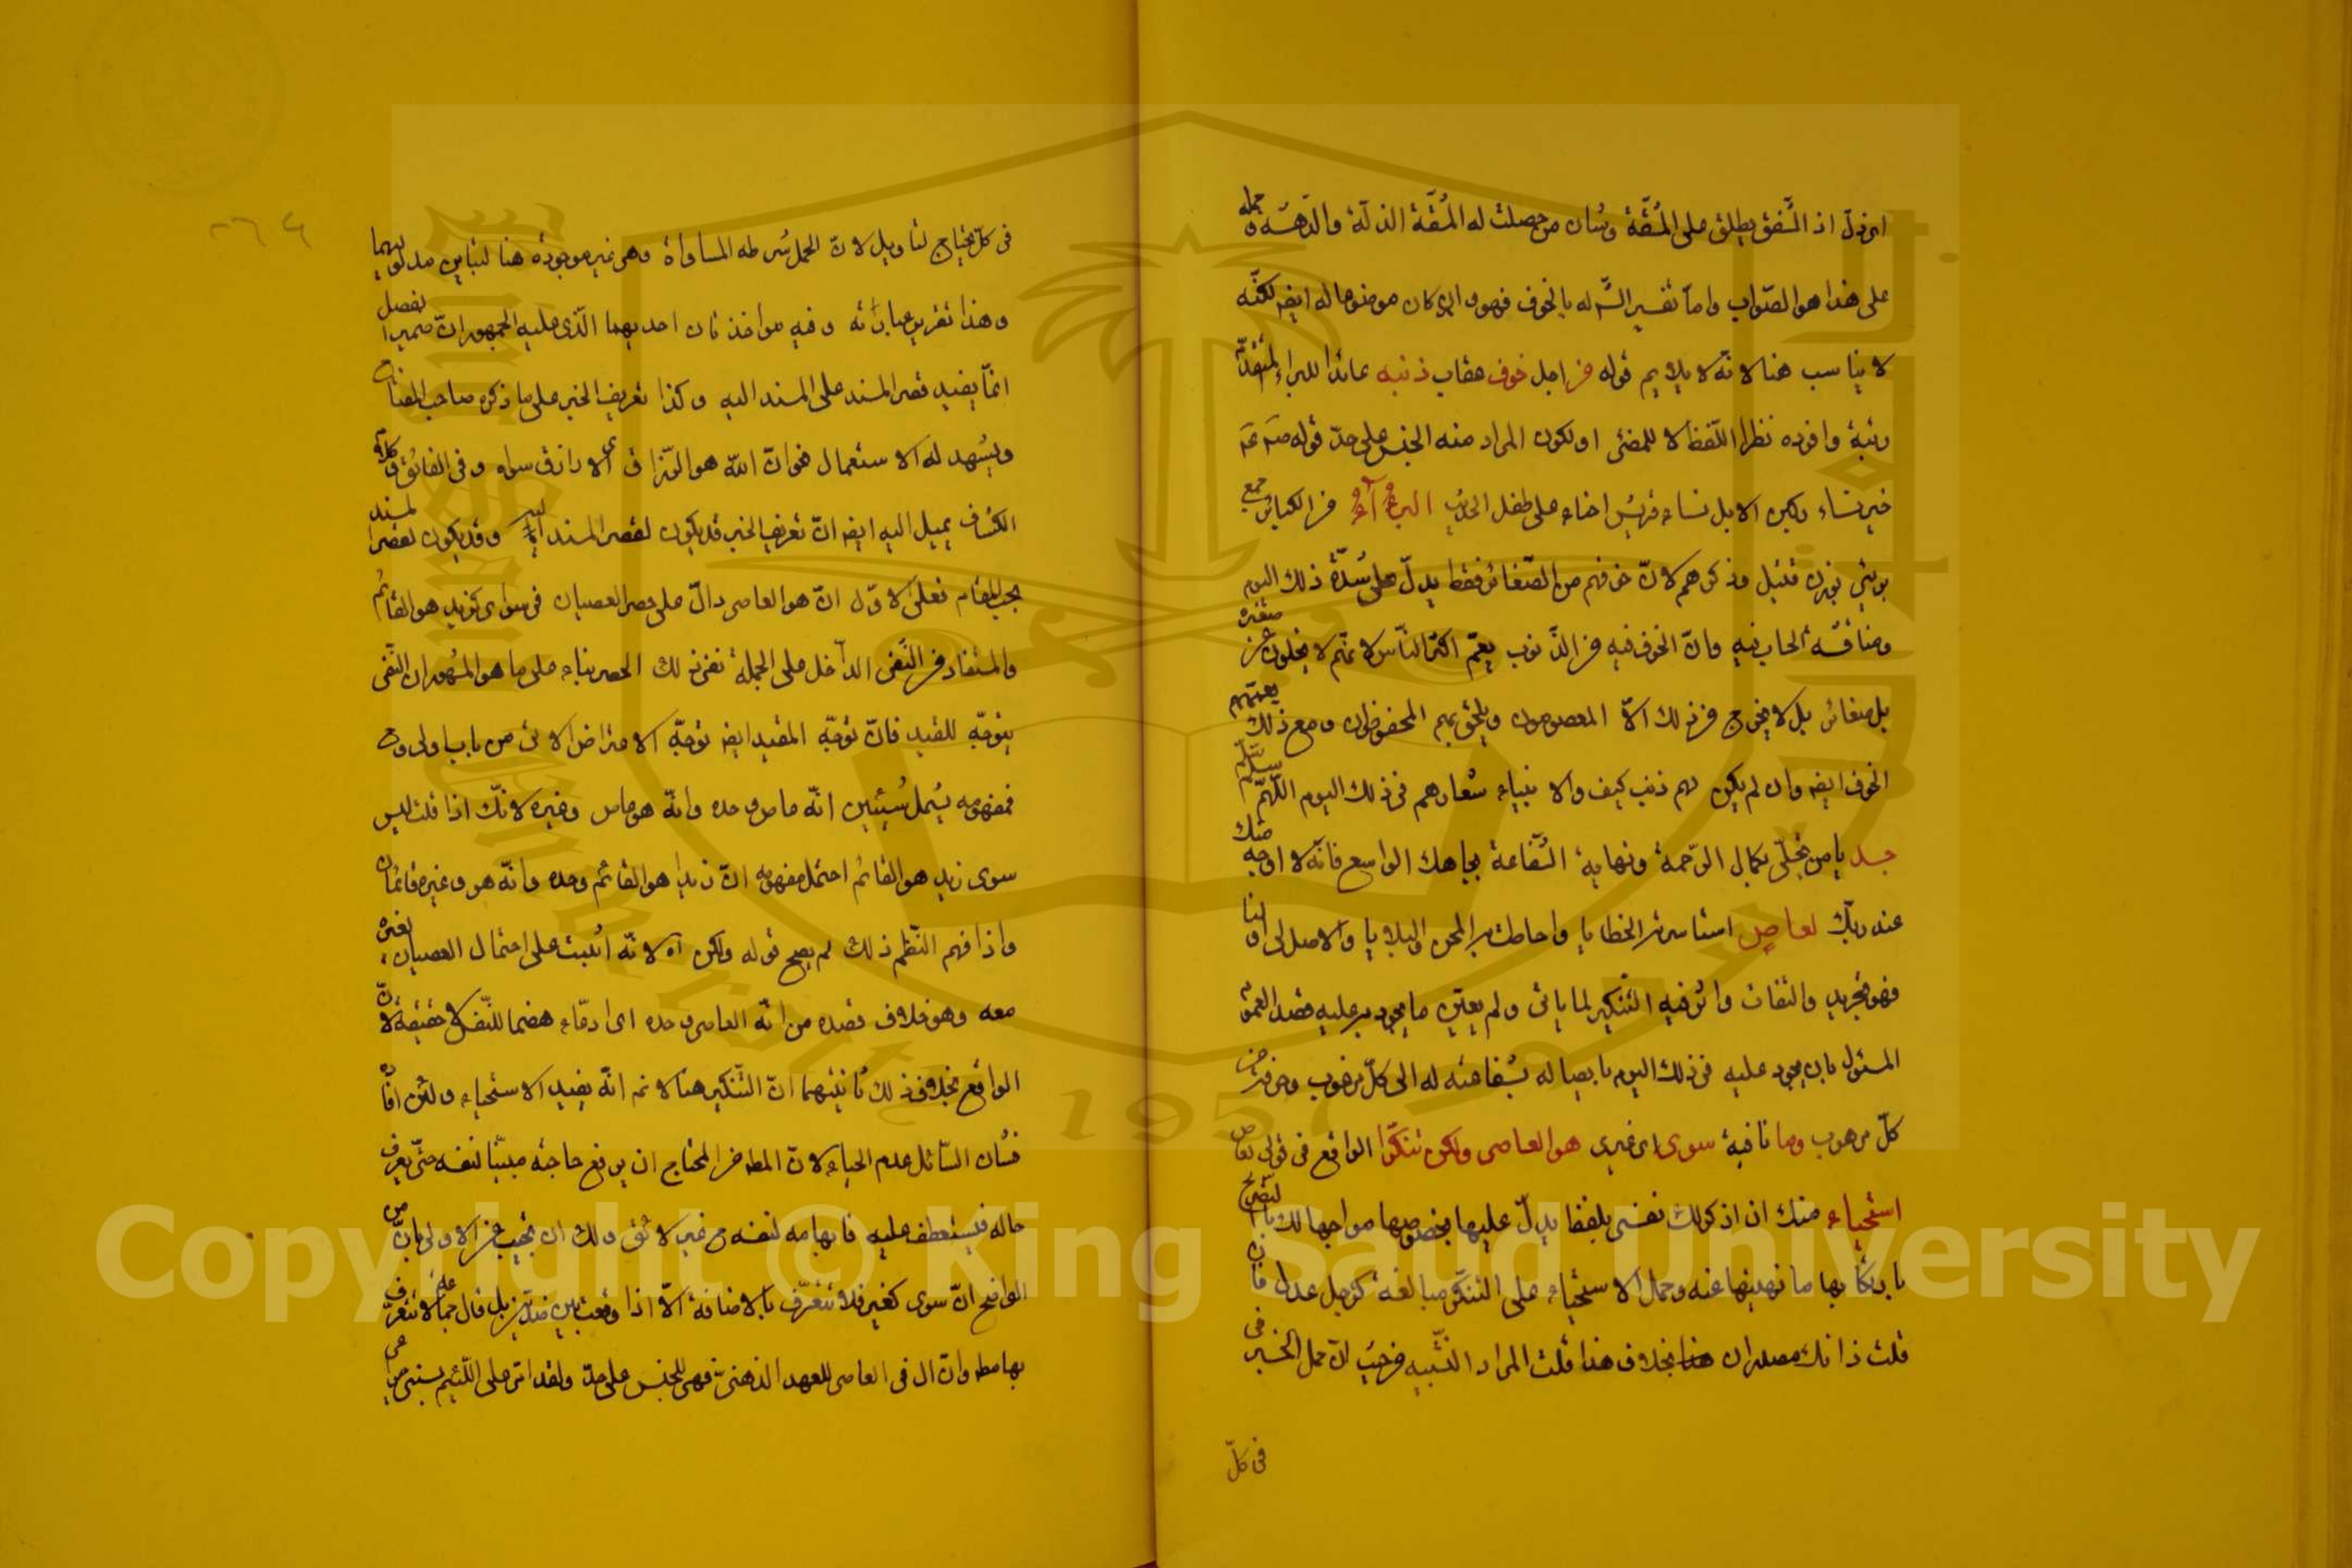 اى ذل اذ الشفق يطلق على المشقة وشان من حصلت له المشقة الذلة والدهشة و حمله
على هذا هو الصواب واما تفسير الش له بالخوف فهو وان كان موضوعا له ايضا لكنه
لا يناسب هنا لانه لا يلايم قوله من اجل خوف عقاب ذنبه عائدا للبراء المتقدم
رتبة وافرده نظرا للفظ لا للمعنى او لكون المراد منه الجنس على حد قوله
خير نساء ركبن الابل نساء قريش احناه على طفل الحديث البرءاء من الكبائر جمع
برئ بوزن فعيل وذكرهم لان خوفهم من الصغائر فقط يدل على شدة ذلك اليوم
ومناقشة الحساب فيه وان الخوف فيه من الذنوب يعم اكثر الناس لانهم لا يخلون عن صغيرة
بل صغائر بل لا يخرج من ذلك الا المعصومون ويلحق بهم المحفوظون ومع ذلك يعمهم
الخوف ايضا وان لم يكن لهم ذنب كيف والانبياء شعارهم فى ذلك اليوم اللهم سلم سلم
جد يا من تحلى بكمال الرحمة ونهاية الشفاعة بجاهك الواسع فانه لا اوجه منك
عند ربك لعاص استاسرته الخطايا واحاطت به المحن والبلايا والاصل لى او لنا
فهو تجريد والتفات واثر فيه التنكير لما ياتى ولم يعين ما يجود به عليه لقصد العموم
المسئول بان يجود عليه فى ذلك اليوم بايصاله بشفاعته له الى كل مرغوب وصرفه عن
كل مرهوب وما نافية سوى اى غيرى هو العاصى ولكن تنكرا الواقع فى قولى لعاص
استحياء منك ان اذكر لك نفسى بلفظ يدل عليها بخصوصها مواجها لك بالتصريح
بارتكابها ما نهيتها عنه وحمل الاستحياء على التنكر مبالغة كرجل عدل فان
قلت ذانك مصدران بخلاف هذا قلت المراد التشبيه من حيث ان حمل الخبر فى
فى كل
فى كل يحتاج لتاويل لان الحمل شرطه المساواة وهى غير موجودة هنا لتباين مدلوليهما
وهذا تقرير عباراته وفيه مواخذتان احديهما الذى عليه الجمهور ان ضمير الفصل
انما يفيد قصر المسند على المسند اليه وكذا تعريف الخبر على ما ذكره صاحب المفتاح
ويشهد له الاستعمال نحو ان الله هو الرزاق اى لا رازق سواه وفى الفائق وكلام
الكشاف يميل اليه ايضا ان تعريف الخبر قد يكون لقصر المسند اليه وقد يكون لقصر المسند
بحسب المقام فعلى الاول ان هو العاصى دال على حصر العصيان فى سواى كزيد هو القائم
والمستفاد من النفى الداخل على الجملة نفى ذلك الحصر بناء على ما هو المشهور ان النفى
يتوجه للقيد فان توجه للمقيد ايضا توجه الاعتراض الاتى من باب اولى وح
فمفهومه يشمل شيئين انه عاص وحده وانه هو عاص وغيره لانك اذا قلت ليس
سوى زيد هو القائم احتمل مفهومه ان زيدا هو القائم وحده وانه هو وغيره قائمان
واذا فهم النظم ذلك لم يصح قوله ولكن آه لانه اثبت على احتمال العصيان لغيره
معه وهو خلاف قصده من انه العاصى وحده اى ادعاء هضما للنفس لا حقيقة لان
الواقع بخلاف ذلك ثانيتهما ان التنكير هنا لا نم انه يفيد الاستحياء ولئن افاده
فشان السائل عدم الحياء لان المط من المحتاج ان يرفع حاجته مبينا لنفسه حتى يعرف
حاله فيستعطف عليه فابهامه لنفسه ح غير لائق ولك ان تجيب عن الاولى بان من
الواضح ان سوى كغير فلا تتعرف بالاضافة الا اذا وقعت بين ضدين بل قال جماعة لا تتعرف
بها مط وان ال فى العاصى للعهد الذهنى فهى للجنس على حد ولقد امر على اللئيم يسبنى